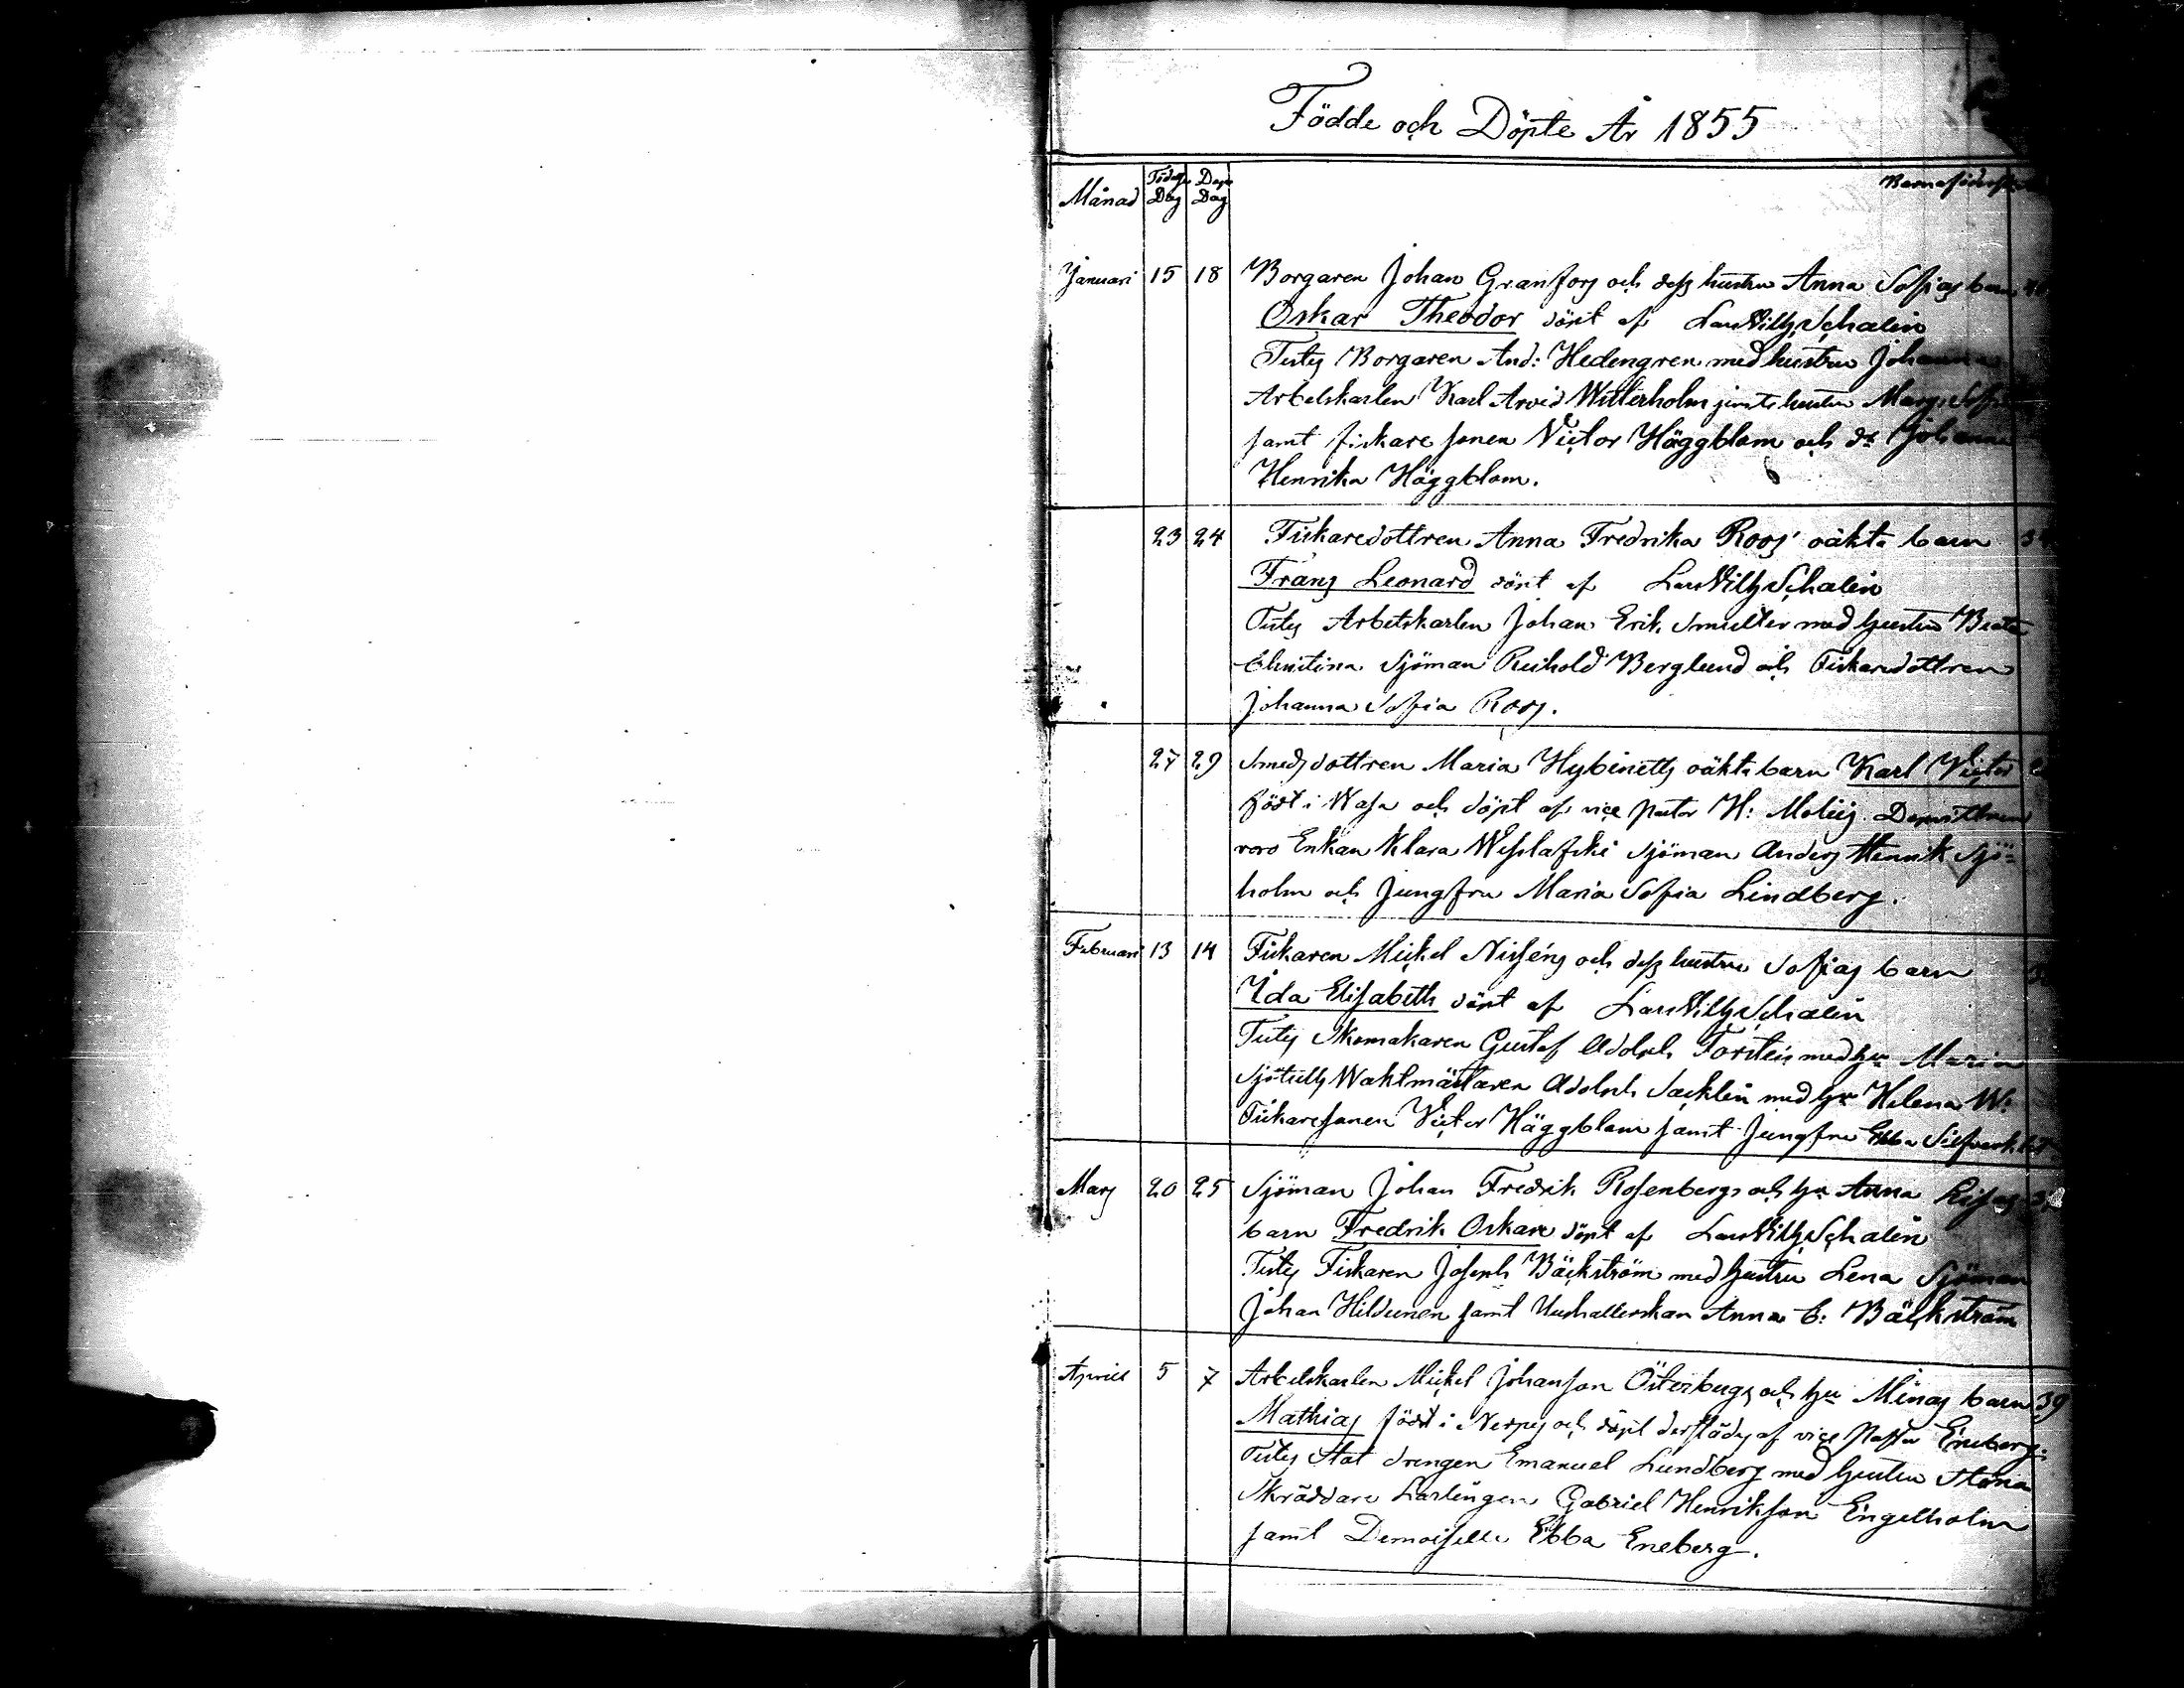 Födde och Döpte År 1855
Månad Födelse Dag Dope Dag
Januari 15 18 Borgaren Johan Granfors och dess hustru Anna Sofias barn
Oskar Theodor döpt af Lars Wilh. Schalin
Testes Borgaren And: Hedengren med hustru Johanna
Arbetskarlen Karl Arvid Witterholm jemte hustru
samt fiskare sonen Victor Häggblom och dr Johanna
Henrika Häggblom.
23 24 Fiskaredottren Anna Fredrika Roos' oäkta barn
Frans Leonard döpt af Lars Wilh. Schalin
Testes Arbetskarlen Johan Erik Smulter med hustru Beata
Christina Sjöman Reihold Berglund och Fiskaredottren
Johanna Sofia Roos.
27 29 Smedsdottren Maria Hybinetts oäkta barn Karl Victor
född i Wasa och döpt af vice pastor H: Moliis.
voro Enkan Klara Wesslafski Sjöman Anders Henrik Sjö=
holm och Jungfru Maria Sofia Lindberg.
Februari 13 14 Fiskaren Mickel Nisséns och dess hustru Sofias barn
Ida Elisabeth döpt af Lars Wilh. Schalin
Testes Skomakaren Gustaf Adolph Forstein med hu Maria
Sjötulls Waktmästaren Adolph Sacklin med hu Helena W:
Fiskaresonen Victor Häggblom samt Jungfru Ebba
Mars 20 25 Sjöman Johan Fredrik Rosenbergs och hu Anna
barn Fredrik Oskar döpt af Lars Wilh. Schalin
Testes Fiskaren Joseph Bäckström med hustru Lena Sjöman
Johan Hildunen samt Hushallerskan Anna C: Bäckström
April 5 7 Arbetskarlen Mickel Johansson Österbergs och hu Minas barn 39
Mathias född i Nerpes och döpt derstädes af vice Pastor Eneberg.
Testes Stat drengen Emanuel Lundberg med hustru
Skräddare Lärlingen Gabriel Henriksson Engelholm
samt Demoiselle Ebba Eneberg.